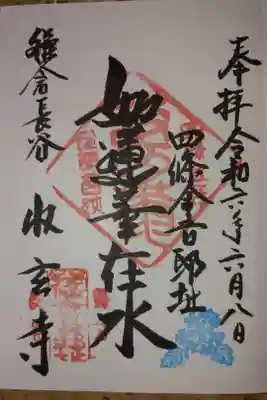 奉拝 令和六年六月八日
四條金吾邸址
如蓮華在水
鎌倉長谷
収玄寺